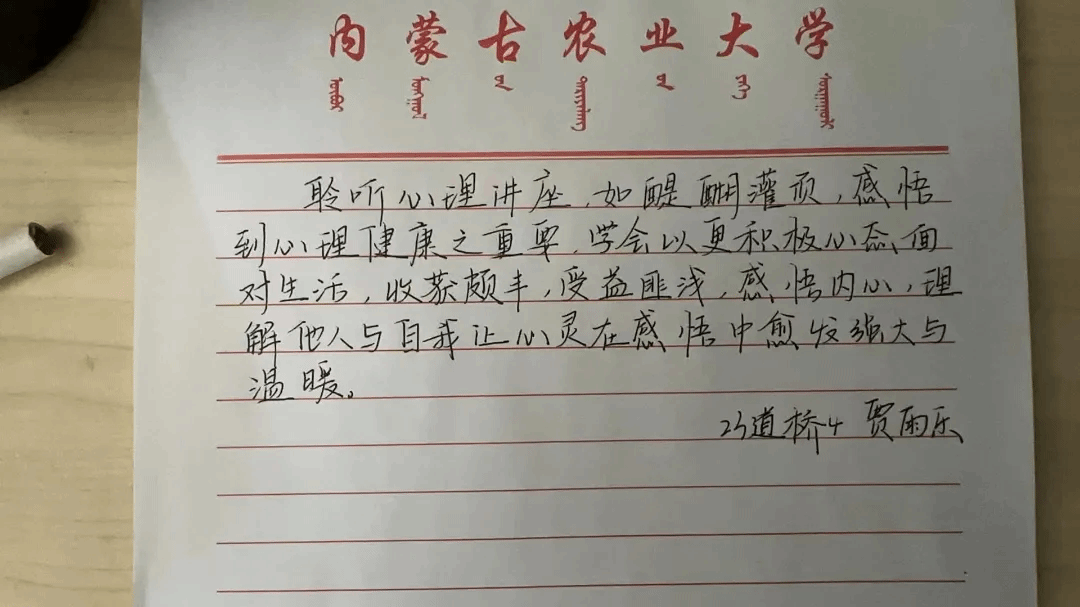 内蒙古农业大学
聆听心理讲座,如醍醐灌顶,感悟
到心理健康之重要,学会以更积极心态面
对生活,收获颇丰,受益匪浅,感悟内心,理
解他人与自我让心灵在感悟中愈发强大与
温暖。
23道桥4 贾雨乐